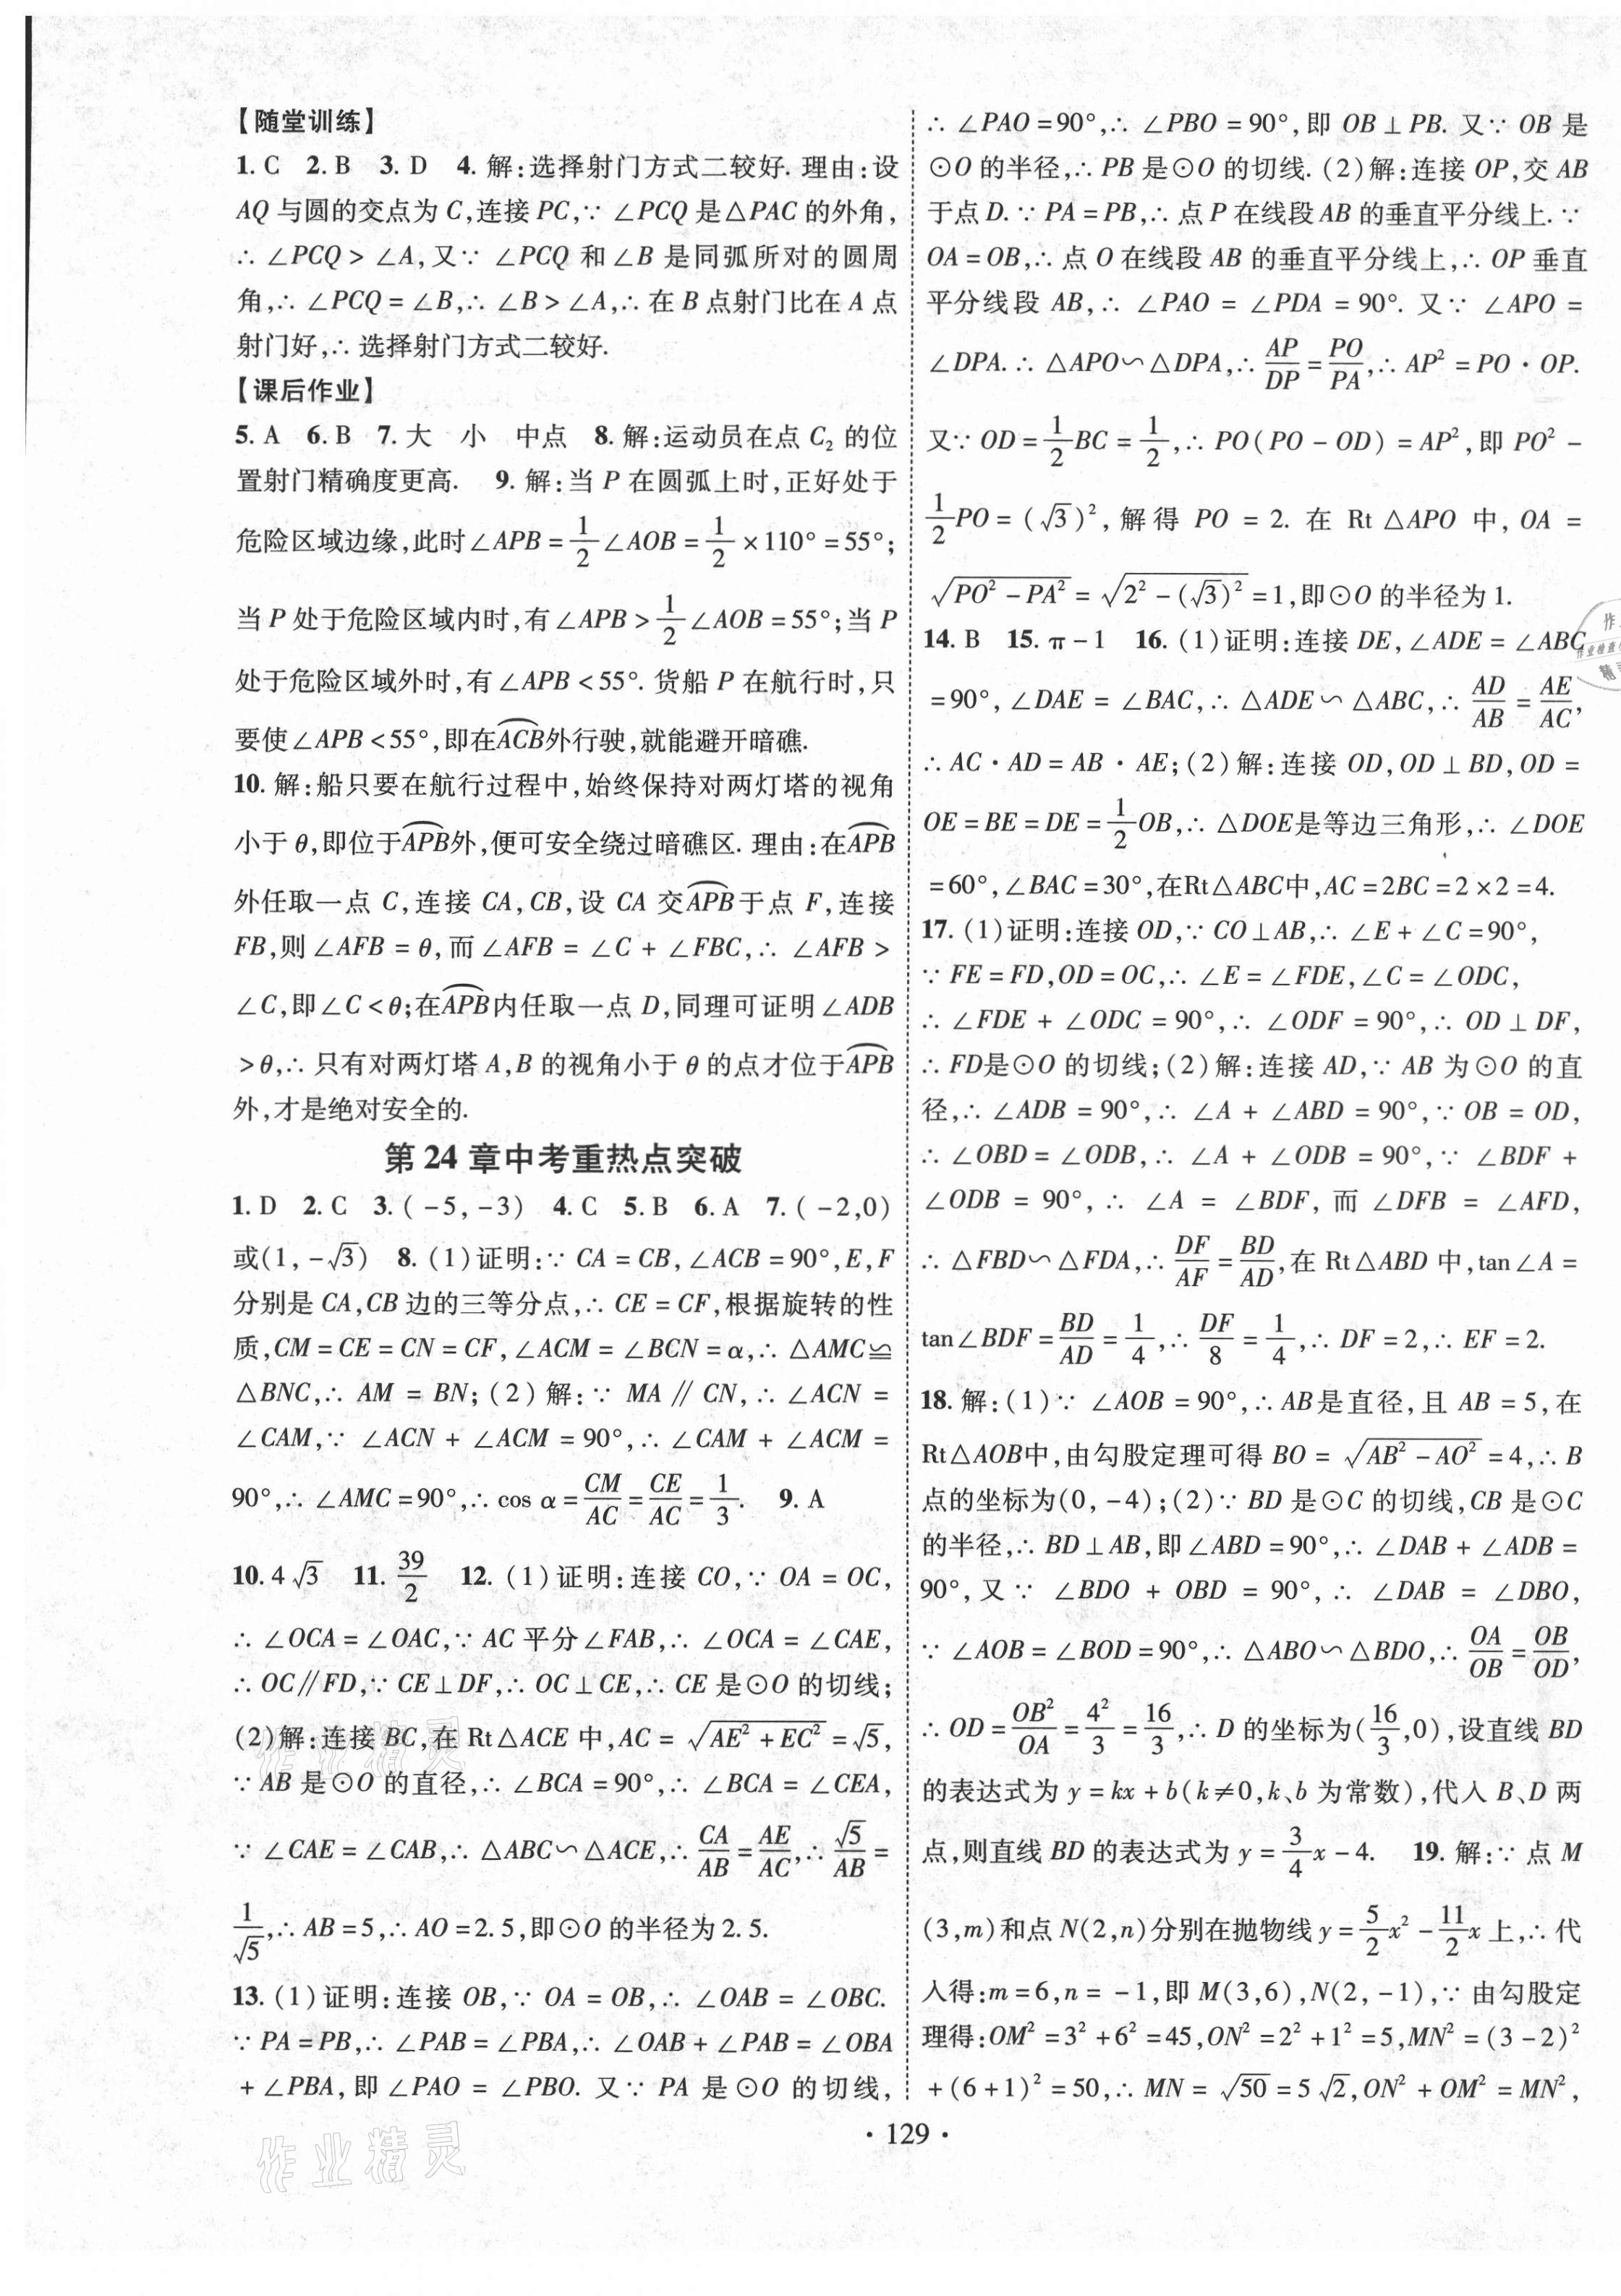 【随堂训练】
1. C 2. B 3. D 4. 解:选择射门方式二较好. 理由:设
AQ 与圆的交点为 C,连接 PC,∵ ∠PCQ 是△PAC 的外角,
∴ ∠PCQ > ∠A,又∵ ∠PCQ 和∠B 是同弧所对的圆周
角,∴ ∠PCQ = ∠B,∴ ∠B > ∠A,∴ 在 B 点射门比在 A 点
射门好,∴ 选择射门方式二较好.
【课后作业】
5. A 6. B 7. 大 小 中点 8. 解:运动员在点 C₂ 的位
置射门精确度更高. 9. 解:当 P 在圆弧上时,正好处于
危险区域边缘,此时∠APB = 1/2 ∠AOB = 1/2 × 110° = 55°;
当 P 处于危险区域内时,有∠APB > 1/2 ∠AOB = 55°;当 P
处于危险区域外时,有∠APB < 55°. 货船 P 在航行时,只
要使∠APB < 55°,即在⌒ACB外行驶,就能避开暗礁.
10. 解:船只要在航行过程中,始终保持对两灯塔的视角
小于 θ,即位于⌒APB外,便可安全绕过暗礁区. 理由:在⌒APB
外任取一点 C,连接 CA,CB,设 CA 交⌒APB于点 F,连接
FB,则∠AFB = θ,而∠AFB = ∠C + ∠FBC,∴ ∠AFB >
∠C,即∠C < θ;在⌒APB内任取一点 D,同理可证明∠ADB
> θ,∴ 只有对两灯塔 A,B 的视角小于 θ 的点才位于⌒APB
外,才是绝对安全的.
第 24 章中考重热点突破
1. D 2. C 3. ( -5, -3) 4. C 5. B 6. A 7. ( -2,0)
或(1, -√3) 8. (1)证明:∵ CA = CB,∠ACB = 90°,E,F
分别是 CA,CB 边的三等分点,∴ CE = CF,根据旋转的性
质,CM = CE = CN = CF,∠ACM = ∠BCN = α,∴ △AMC≌
△BNC,∴ AM = BN; (2)解:∵ MA∥CN,∴ ∠ACN =
∠CAM,∵ ∠ACN + ∠ACM = 90°,∴ ∠CAM + ∠ACM =
90°,∴ ∠AMC = 90°,∴ cos α = CM/AC = CE/AC = 1/3. 9. A
10. 4√3 11. 39/2 12. (1)证明:连接 CO,∵ OA = OC,
∴ ∠OCA = ∠OAC,∵ AC 平分∠FAB,∴ ∠OCA = ∠CAE,
∴ OC∥FD,∵ CE⊥DF,∴ OC⊥CE,∴ CE 是⊙O 的切线;
(2)解:连接 BC,在 Rt△ACE 中,AC = √(AE² + EC²) = √5,
∵ AB 是⊙O 的直径,∴ ∠BCA = 90°,∴ ∠BCA = ∠CEA,
∵ ∠CAE = ∠CAB,∴ △ABC∽△ACE,∴ CA/AB = AE/AC,∴ √5/AB =
1/√5,∴ AB = 5,∴ AO = 2.5,即⊙O 的半径为 2.5.
13. (1)证明:连接 OB,∵ OA = OB,∴ ∠OAB = ∠OBC.
∵ PA = PB,∴ ∠PAB = ∠PBA,∴ ∠OAB + ∠PAB = ∠OBA
+ ∠PBA,即∠PAO = ∠PBO. 又∵ PA 是⊙O 的切线,
∴ ∠PAO = 90°,∴ ∠PBO = 90°,即 OB⊥PB. 又∵ OB 是
⊙O 的半径,∴ PB 是⊙O 的切线. (2)解:连接 OP,交 AB
于点 D. ∵ PA = PB,∴ 点 P 在线段 AB 的垂直平分线上. ∵
OA = OB,∴ 点 O 在线段 AB 的垂直平分线上,∴ OP 垂直
平分线段 AB,∴ ∠PAO = ∠PDA = 90°. 又∵ ∠APO =
∠DPA. ∴ △APO∽△DPA,∴ AP/DP = PO/PA,∴ AP² = PO·OP.
又∵ OD = 1/2 BC = 1/2,∴ PO(PO - OD) = AP²,即 PO² -
1/2 PO = (√3)²,解得 PO = 2. 在 Rt△APO 中,OA =
√(PO² - PA²) = √(2² - (√3)²) = 1,即⊙O 的半径为 1.
14. B 15. π - 1 16. (1)证明:连接 DE,∠ADE = ∠ABC
= 90°,∠DAE = ∠BAC,∴ △ADE∽△ABC,∴ AD/AB = AE/AC,
∴ AC·AD = AB·AE; (2)解:连接 OD,OD⊥BD,OD =
OE = BE = DE = 1/2 OB,∴ △DOE是等边三角形,∴ ∠DOE
= 60°,∠BAC = 30°,在Rt△ABC中,AC = 2BC = 2 × 2 = 4.
17. (1)证明:连接 OD,∵ CO⊥AB,∴ ∠E + ∠C = 90°,
∵ FE = FD,OD = OC,∴ ∠E = ∠FDE,∠C = ∠ODC,
∴ ∠FDE + ∠ODC = 90°,∴ ∠ODF = 90°,∴ OD⊥DF,
∴ FD是⊙O 的切线;(2)解:连接 AD,∵ AB 为⊙O 的直
径,∴ ∠ADB = 90°,∴ ∠A + ∠ABD = 90°,∵ OB = OD,
∴ ∠OBD = ∠ODB,∴ ∠A + ∠ODB = 90°,∵ ∠BDF +
∠ODB = 90°,∴ ∠A = ∠BDF,而∠DFB = ∠AFD,
∴ △FBD∽△FDA,∴ DF/AF = BD/AD,在 Rt△ABD 中,tan∠A =
tan∠BDF = BD/AD = 1/4,∴ DF/8 = 1/4,∴ DF = 2,∴ EF = 2.
18. 解:(1)∵ ∠AOB = 90°,∴ AB是直径,且 AB = 5,在
Rt△AOB中,由勾股定理可得 BO = √(AB² - AO²) = 4,∴ B
点的坐标为(0, -4);(2)∵ BD 是⊙C 的切线,CB 是⊙C
的半径,∴ BD⊥AB,即∠ABD = 90°,∴ ∠DAB + ∠ADB =
90°,又∵ ∠BDO + OBD = 90°,∴ ∠DAB = ∠DBO,
∵ ∠AOB = ∠BOD = 90°,∴ △ABO∽△BDO,∴ OA/OB = OB/OD,
∴ OD = OB²/OA = 4²/3 = 16/3,∴ D 的坐标为(16/3,0),设直线 BD
的表达式为 y = kx + b(k≠0,k、b 为常数),代入 B、D 两
点,则直线 BD 的表达式为 y = 3/4 x - 4. 19. 解:∵ 点 M
(3,m)和点 N(2,n)分别在抛物线 y = 5/2 x² - 11/2 x 上,∴ 代
入得:m = 6,n = -1,即 M(3,6),N(2, -1),∵ 由勾股定
理得:OM² = 3² + 6² = 45,ON² = 2² + 1² = 5,MN² = (3 - 2)²
+ (6 + 1)² = 50,∴ MN = √50 = 5√2,ON² + OM² = MN²,
· 129 ·
作业精灵
作业精灵